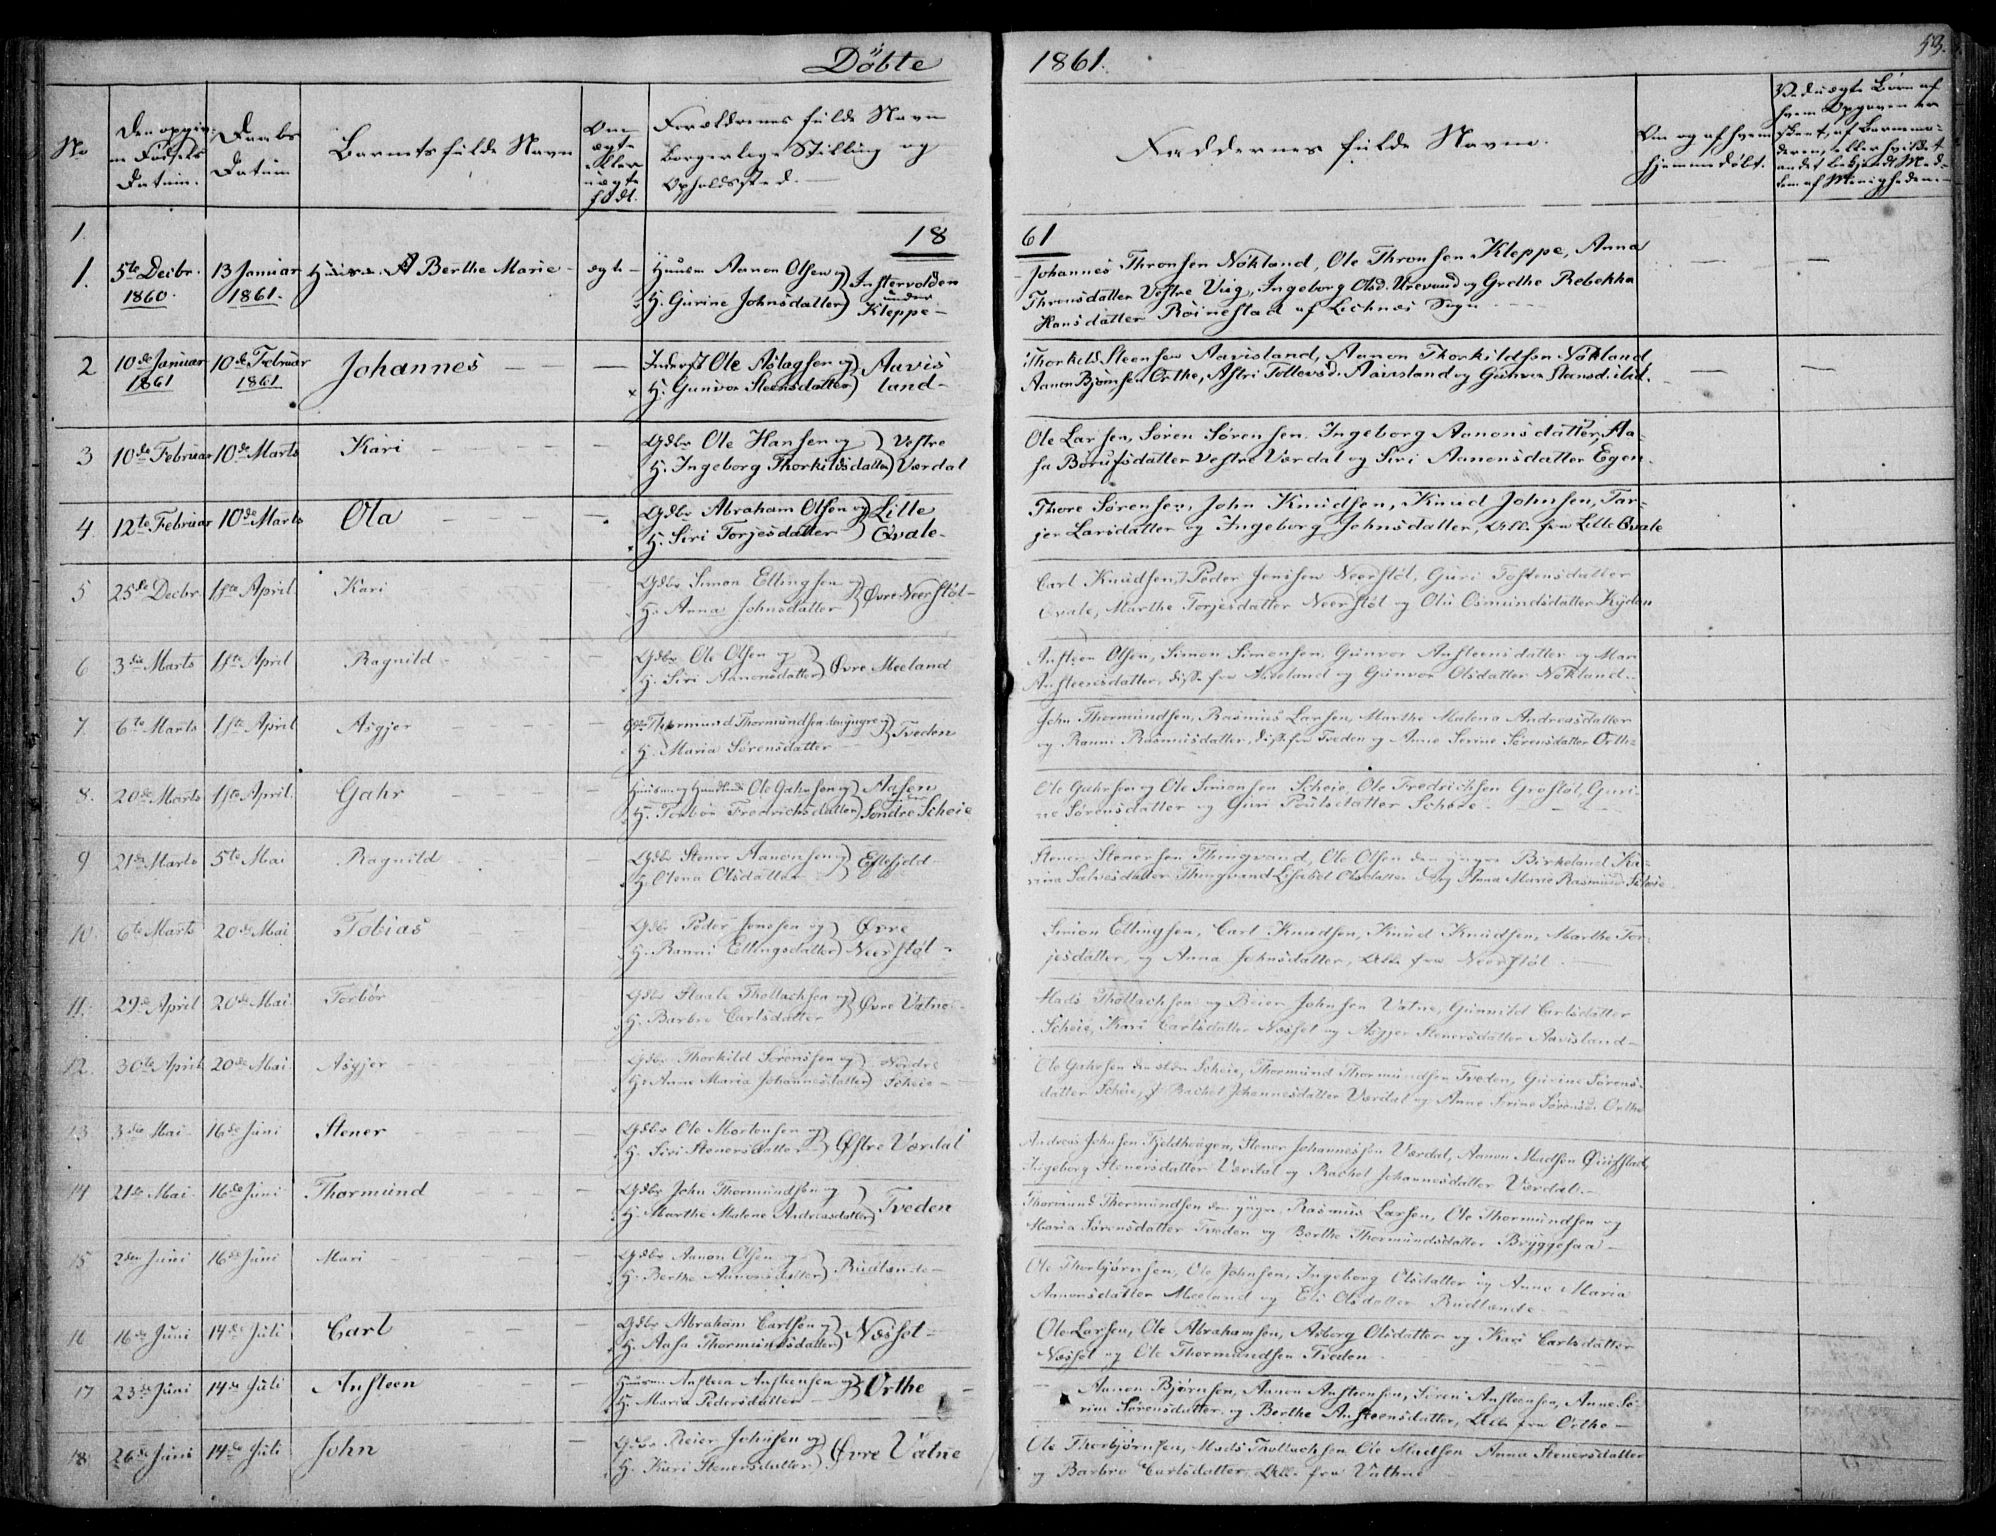 Döbte 1861. 53.
No
Den opgivne Fødsels Datum.
Daabs Datum
Barnets fulde Navn
Om ægte eller uægte født.
Forældrenes fulde Navn Borgerlige Stilling og Opholdssted.
Faddernes fulde Navne.
Om og af hvem hjemmedøbt.
1. 18 61
1. 5te Decbr. 1860. 13 Januar 1861. Berthe Marie ægte
Huusm Aanon Olsen og
H. Gurine Johnsdatter Instevolden under Kleppe
Johannes Thronsen Nökland, Ole Thronsen Kleppe, Anna
Thronsdatter Vestre Viig, Ingeborg Olsd. Urevand og Grethe Rebekka
Hansdatter Röinestad af Suogn
2 10de Januar 1861 10de Februar 1861 Johannes
Inderst Ole Aslagsen og
H. Gunvor Steensdatter Aavisland
Thorkild Steensen Aavisland, Aanon Thorkildsen Nökland,
Aanon Bjørnsen Orthe, Astri Tollevsd. Aavisland og Gunvor Steensd. ibid.
3 10de Februar 10de Marts Kari
Gdbr Ole Hansen og
H. Ingeborg Thorkildsdatter Vestre Værdal
Ole Larsen, Søren Sørensen, Ingeborg Aanonsdatter, Aa-
sa Børufsdatter Vestre Værdal og Siri Aanonsdatter Egen
4 12te Februar 10de Marts Ola
Gdbr Abraham Olsen og
H. Siri Torjesdatter Lille Qvale
Thore Sørensen, John Knudsen, Knud Johnsen, Tar-
jer Larsdatter og Ingeborg Johnsdatter, Alle fra Lille Qvale
5 25de Decbr. 1ste April Kari
Gdbr Simon Ellingsen og
H. Anna Johnsdatter Øvre Neerstöl
Carl Knudsen, Peder Jenssen Neerstöl, Guri Tostensdatter
Qvale, Marthe Torjesdatter Neerstöl og Oli Osmundsdatter
6 3die Marts 1ste April Ragnild
Gdbr Ole Olsen og
H. Siri Aanonsdatter Øvre Meeland
Ansteen Olsen, Simon Simonsen, Gunvor Ansteensdatter og Mari
Ansteensdatter, disse fra Meeland og Gunvor Olsdatter Nökland
7. 6te Marts 1ste April Asgjer
Gdbr Thormund Thormundsen den yngre og
H. Maria Sørensdatter Tveden
John Thormundsen, Rasmus Larsen, Marthe Malena Andreasdatter
og Ranni Rasmusdatter, disse fra Tveden og Anne Serine Sørensdatter Orthe
8. 20de Marts 1ste April. Gahr
Huusm. og Ole Gahrsen og
H. Torbør Fredrichsdatter Aasen under Søndre Scheie
Ole Gahrsen og Ole Simonsen Scheie, Ole Fredrichsen Grostöl, Guri-
ne Sørensdatter og Guri Poulsdatter Scheie
9 21de Marts 5te Mai Ragnild
Gdbr Stener Aanonsen og
H. Olena Olsdatter Eftesjold
Stener Stenersen Thingvand, Ole Olsen den yngre Birkeland Ka-
rina Salvesdatter Thingvand Lisabet Olsdatter og Anna Marie Rasmusd. Scheie
10. 6te Marts 20de Mai Tobias
Gdbr Peder Jenssen og
H. Ranni Ellingsdatter Øvre Neerstöl
Simon Ellingsen, Carl Knudsen, Knud Knudsen, Marthe Tor-
jesdatter, og Anna Johnsdatter, Alle fra Neerstöl
11. 29de April 20de Mai. Torbör
Gdbr Staale Thollachsen og
H. Barbro Carlsdatter Øvre Vatne
Mads Thollachsen og Reier Johnsen Vatne, Gunnild Carlsdatter
Scheie, Kari Carlsdatter Næsset og Asgjer Stenersdatter Aavisland
12. 30te April 20de Mai Asgjer
Gdbr Thorkild Sørensen og
H. Anne Maria Johannesdatter Nordre Scheie
Ole Gahrsen den eldre Scheie, Thormund Thormundsen Tveden, Gurine Sørens-
datter Scheie, Rachel Johannesdatter Værdal og Anne Serine Sørensd. Orthe
13 3die Mai 16de Juni Stener
Gdbr Ole Mortensen og
H. Siri Stenersdatter Østre Værdal
Andreas Johnsen Fjeldhougen, Stener Johannessen Værdal, Aanon Madsen
Ingeborg Stenersdatter Værdal og Rachel Johannesdatter Værdal
14 21de Mai 16de Juni Thormund
Gdbr John Thormundsen og
H. Marthe Malene Andreasdatter Tveden
Thormund Thormundsen den yngre, Rasmus Larsen, Ole Thormundsen og
Maria Sørensdatter Tveden og Berthe Thormundsdatter Bryggesaa
15 2den Juni 16de Juni Mari
Gdbr Aanon Olsen og
H. Berthe Aanonsdatter Rudlande
Ole Thorbjørnsen, Ole Johnsen, Ingeborg Olsdatter og Anne Maria
Aanonsdatter Meeland og Eli Olsdatter Rudlande
16 16de Juni 14de Juli Carl
Gdbr Abraham Carlsen og
H. Aasa Thormundsdatter Næsset
Ole Larsen, Ole Abrahamsen, Asborg Olsdatter og Kari Carlsdatter
Næsset og Ole Thormundsen Tveden
17 23de Juni 14de Juli Ansteen
Huusm Ansteen Ansteensen og
H. Maria Pedersdatter Orthe
Aanon Bjørnsen, Aanon Ansteensen, Søren Ansteensen, Anne Se-
rine Sørensdatter og Berthe Ansteensdatter, Alle fra Orthe
18 26de Juni 14de Juli John
Gdbr Reier Johnsen og
H. Kari Stenersdatter Øvre Vatne
Ole Thorbjørnsen, Mads Thollachsen Ole Madsen Anna Stenersdatter
og Barbro Carlsdatter, Alle fra Vathne